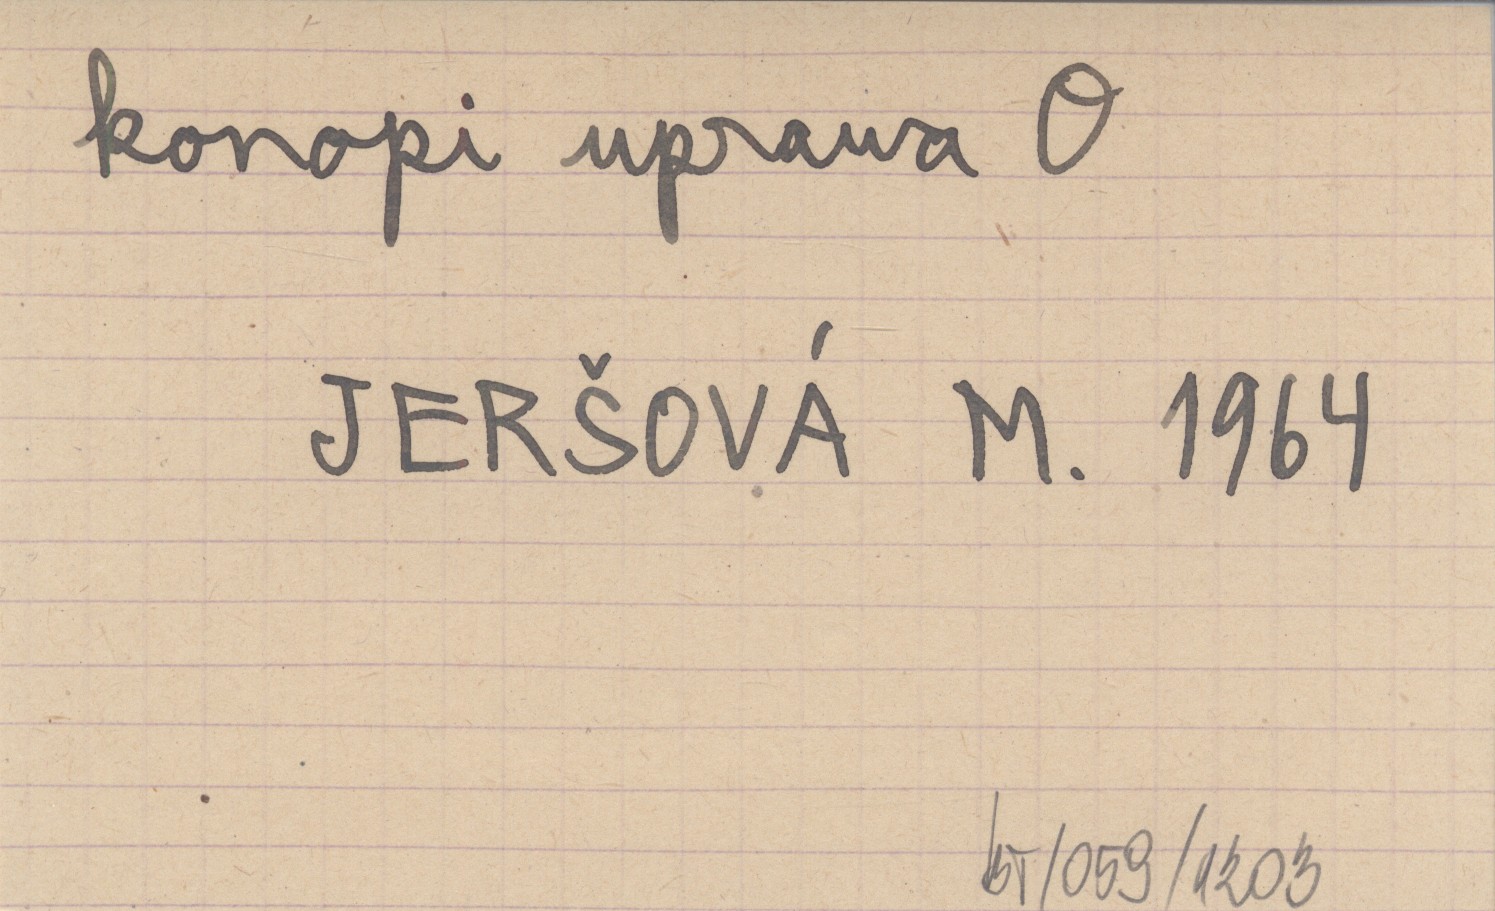 konopi uprawa O
JERŠOVÁ M. 1964
bT/059/1203